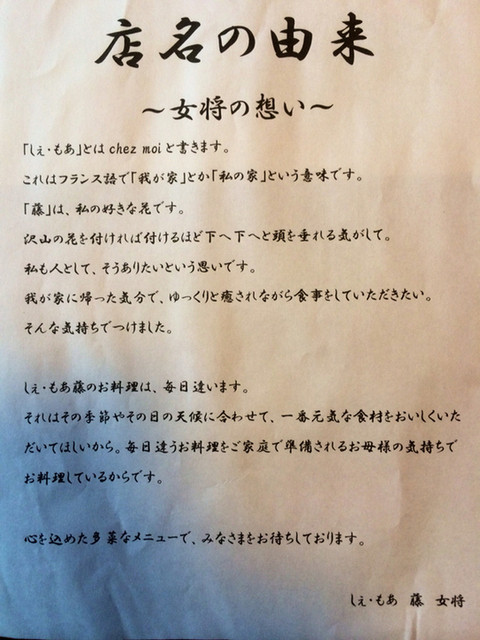 店名の由来
～女将の想い～
「しぇ・もあ」とは chez moi と書きます。
これはフランス語で「我が家」とか「私の家」という意味です。
「藤」は、私の好きな花です。
沢山の花を付ければ付けるほど下へ下へと頭を垂れる気がして。
私も人として、そうありたいという思いです。
我が家に帰った気分で、ゆっくりと癒されながら食事をしていただきたい。
そんな気持ちでつけました。
しぇ・もあ藤のお料理は、毎日違います。
それはその季節やその日の天候に合わせて、一番元気な食材をおいしくいた
だいてほしいから。毎日違うお料理をご家庭で準備されるお母様の気持ちで
お料理しているからです。
心を込めた多菜なメニューで、みなさまをお待ちしております。
しぇ・もあ 藤 女将